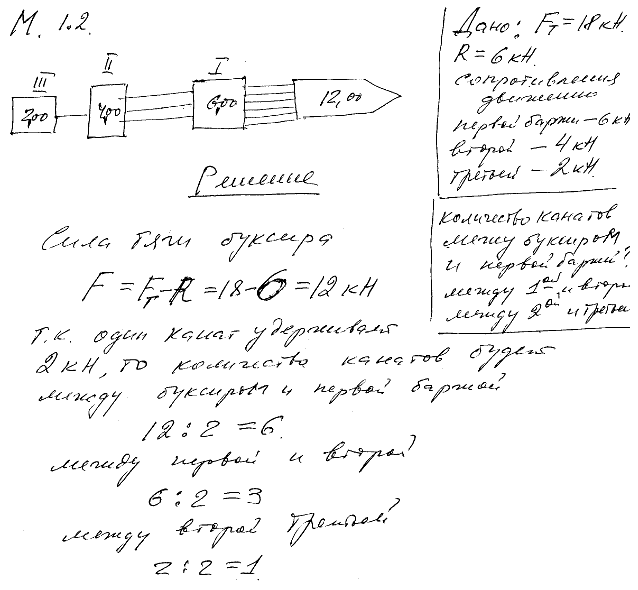 М. 1.2.
III
II
I
2,00
4,00
6,00
12,00
Дано: Fт = 18 кН.
R = 6 кН.
сопротивления
движению
первой баржи – 6 кН
второй – 4 кН
третьей – 2 кН.
количество канатов
между буксиром
и первой баржей?
между 1ой и втор
между 2ой и третьей
Решение
Сила тяги буксира
F = Fт – R = 18 – 6 = 12 кН
т.к. один канат удерживает
2 кН, то количество канатов будет
между буксиром и первой баржой
12 : 2 = 6.
между первой и второй
6 : 2 = 3
между второй третьей
2 : 2 = 1.